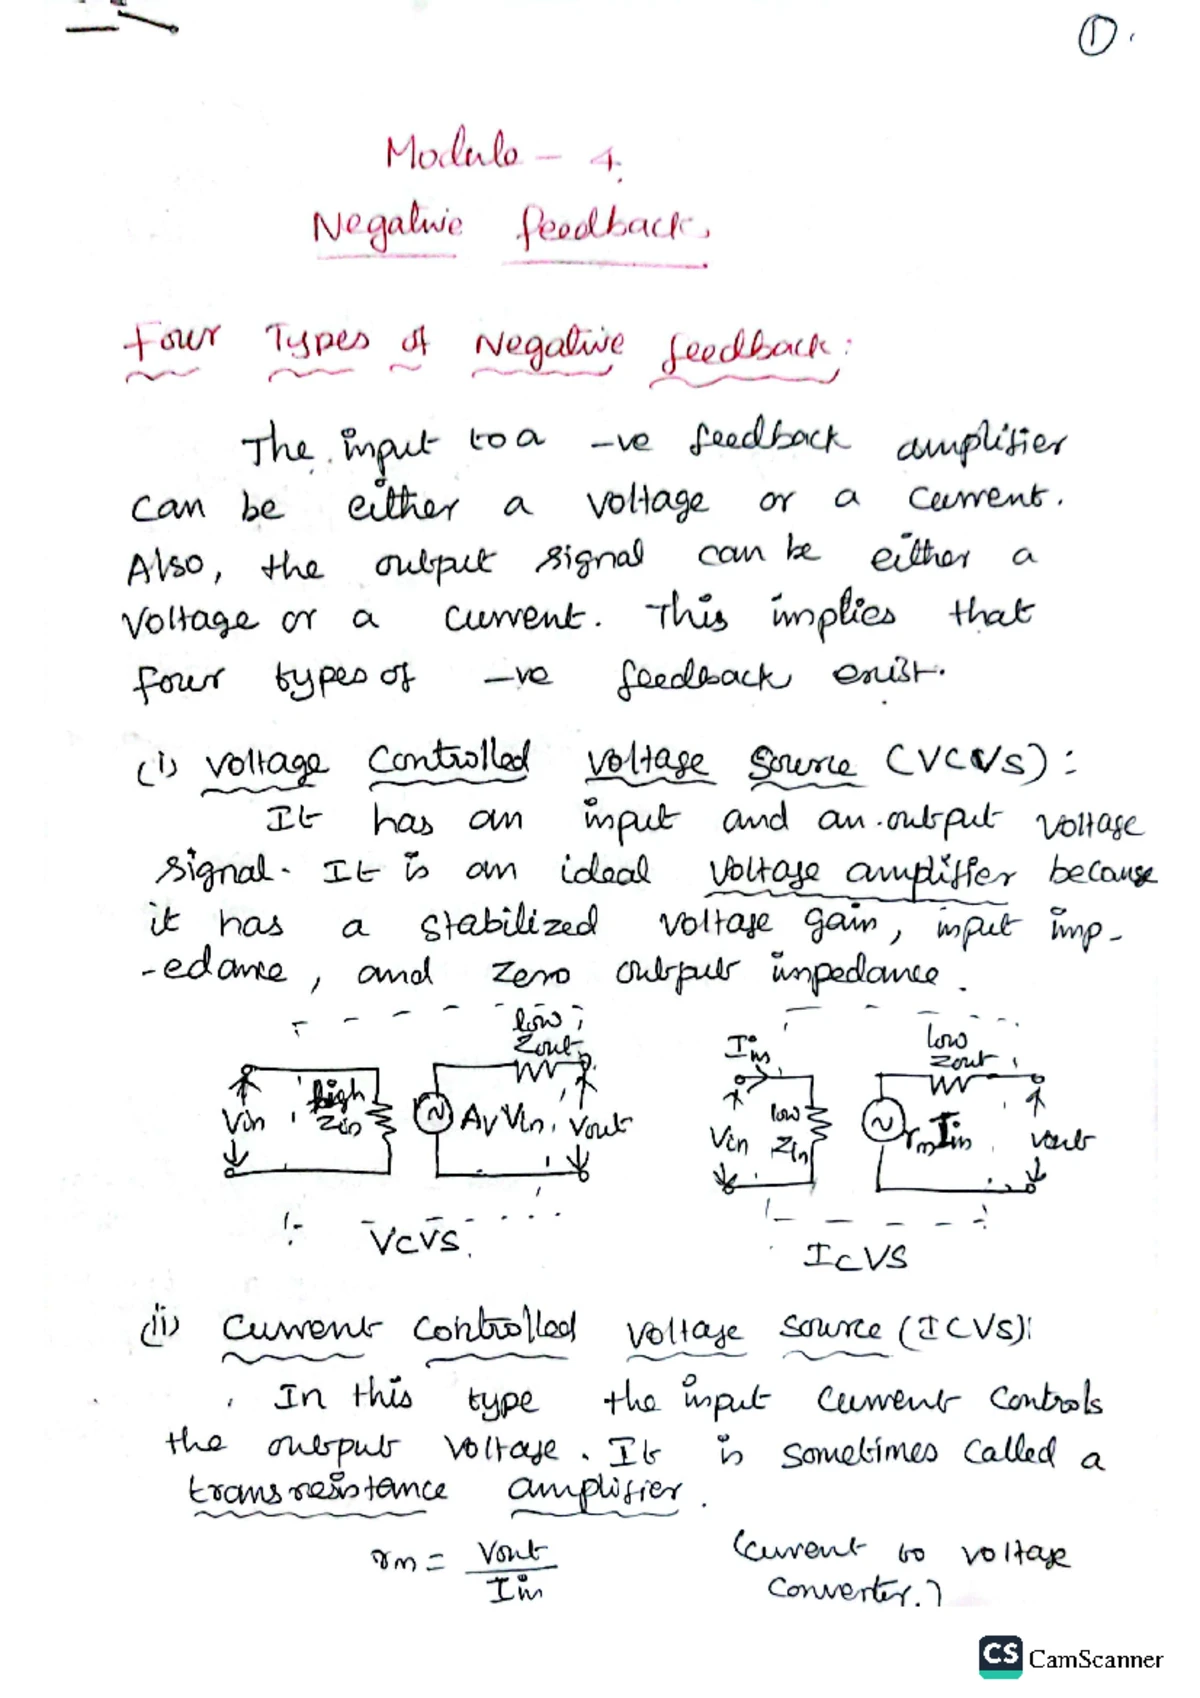 ①.
Module - 4.
Negative feedback.
Four Types of Negative feedback:
The input to a -ve feedback amplifier
can be either a voltage or a current.
Also, the output signal can be either a
Voltage or a current. This implies that
four types of -ve feedback exist.
(i) Voltage Controlled Voltage Source (VCVS):
It has an input and an output voltage
signal. It is an ideal voltage amplifier because
it has a stabilized voltage gain, input imp-
-edance, and zero output impedance.
low Zout
high Zin
Vin
Av Vin
Vout
VCVS
Iin
low Zout
Vin
low Zin
rm Iin
Vout
ICVS
(ii) Current Controlled Voltage Source (ICVS):
In this type the input current controls
the output voltage. It is sometimes called a
transresistance amplifier.
rm = Vout / Iin
(Current to voltage
Converter.)
CS CamScanner